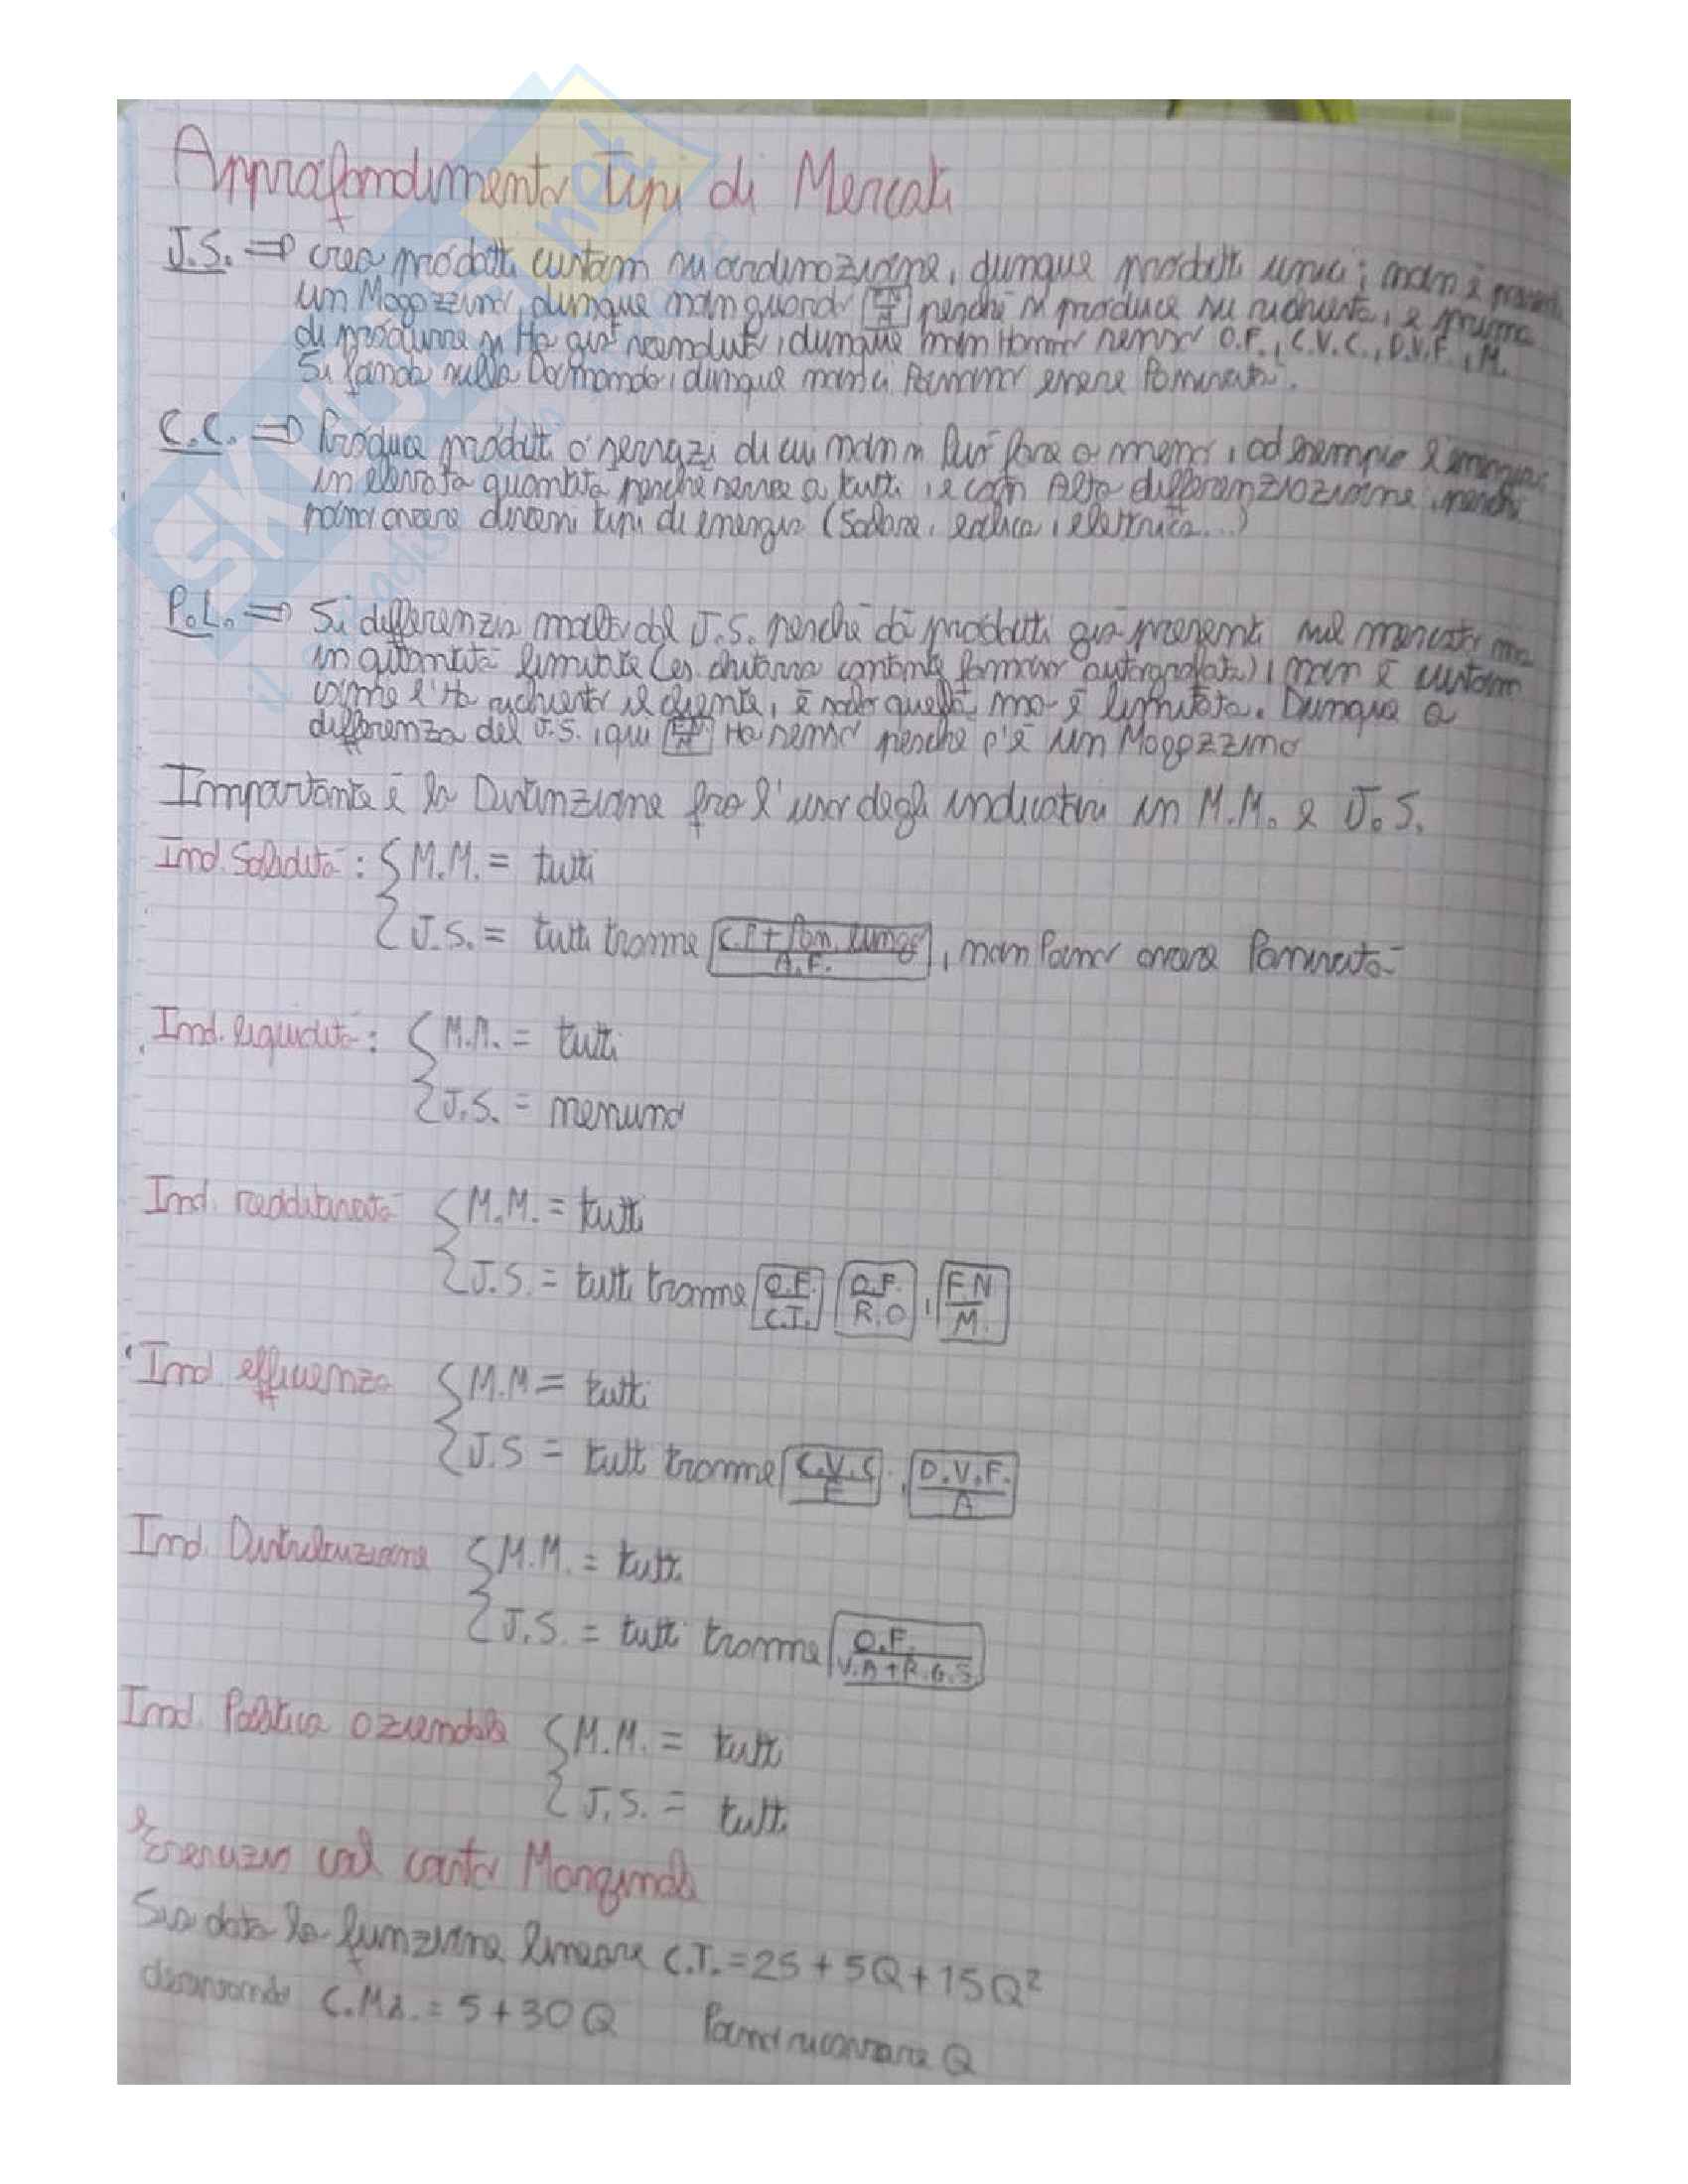 Approfondimento Tipi di Mercati
J.S. ⇒ crea prodotti custom su ordinazione, dunque prodotti unici; non è presente
un Magazzino, dunque non guardo F.N./M perché si produce su richiesta, e prima
di produrre si Ha già venduto, dunque non Hanno senso O.F., C.V.C., D.V.F., M.
Si fonda sulla Domanda, dunque non ci Possono essere Pominata.
C.C. ⇒ Produce prodotti o servizi di cui non si Può fare a meno, ad esempio l'energia,
in elevata quantità perché serve a tutti, e con Alta differenziazione, perché
posso avere diversi tipi di energia (Solare, eolica, elettrica...)
P.L. ⇒ Si differenzia molto dal J.S. perché dà prodotti già presenti nel mercato ma
in quantità limitate (es. chitarra cantante famoso autografata), non è custom
come l'Ha richiesto il cliente, è solo quella, ma è limitata. Dunque a
differenza del J.S., qui F.N./M Ha senso perché c'è un Magazzino
Importante è la Distinzione fra l'uso degli indicatori in M.M. e J.S.
Ind. Solidità: { M.M. = tutti
J.S. = tutti tranne , non Posso avere
Ind. liquidità: { M.M. = tutti
J.S. = nessuno
Ind. redditività { M.M. = tutti
J.S. = tutti tranne O.F./C.I. , O.F./R.O , F.N/M.
Ind. efficienza { M.M = tutti
J.S = tutti tranne C.V.C/F , D.V.F./A
Ind. Distribuzione { M.M. = tutti
J.S. = tutti tranne O.F./V.A+R.G.S.
Ind. Politica aziendale { M.M. = tutti
J.S. = tutti
Esercizio col costo Marginale
Sia data la funzione lineare C.T. = 25 + 5Q + 15Q²
derivando C.Ma. = 5 + 30Q Posso ricavare Q
SKUOLA.net